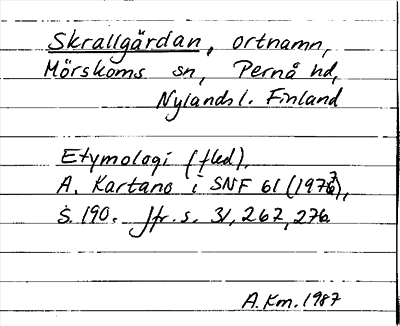 Skrallgärdan, ortnamn,
Mörskoms sn, Pernå hd,
Nylands l. Finland
Etymologi (fled).
A. Kartano i SNF 61 (1977),
s. 190. Jfr. s. 31, 267, 276.
A.Km. 1987